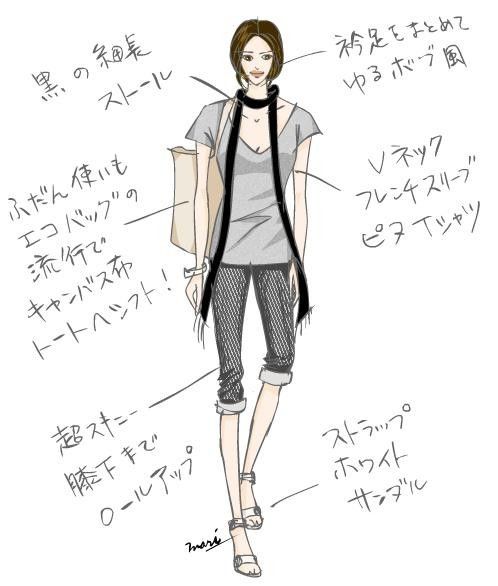 黒の細長
ストール
衿足をまとめて
ゆるボブ風
Vネック
フレンチスリーブ
ピタTシャツ
ふだん使いも
エコバッグの
流行で
キャンバス布
トートへシフト!
超スキニー
膝下まで
ロールアップ
ストラップ
ホワイト
サンダル
mari